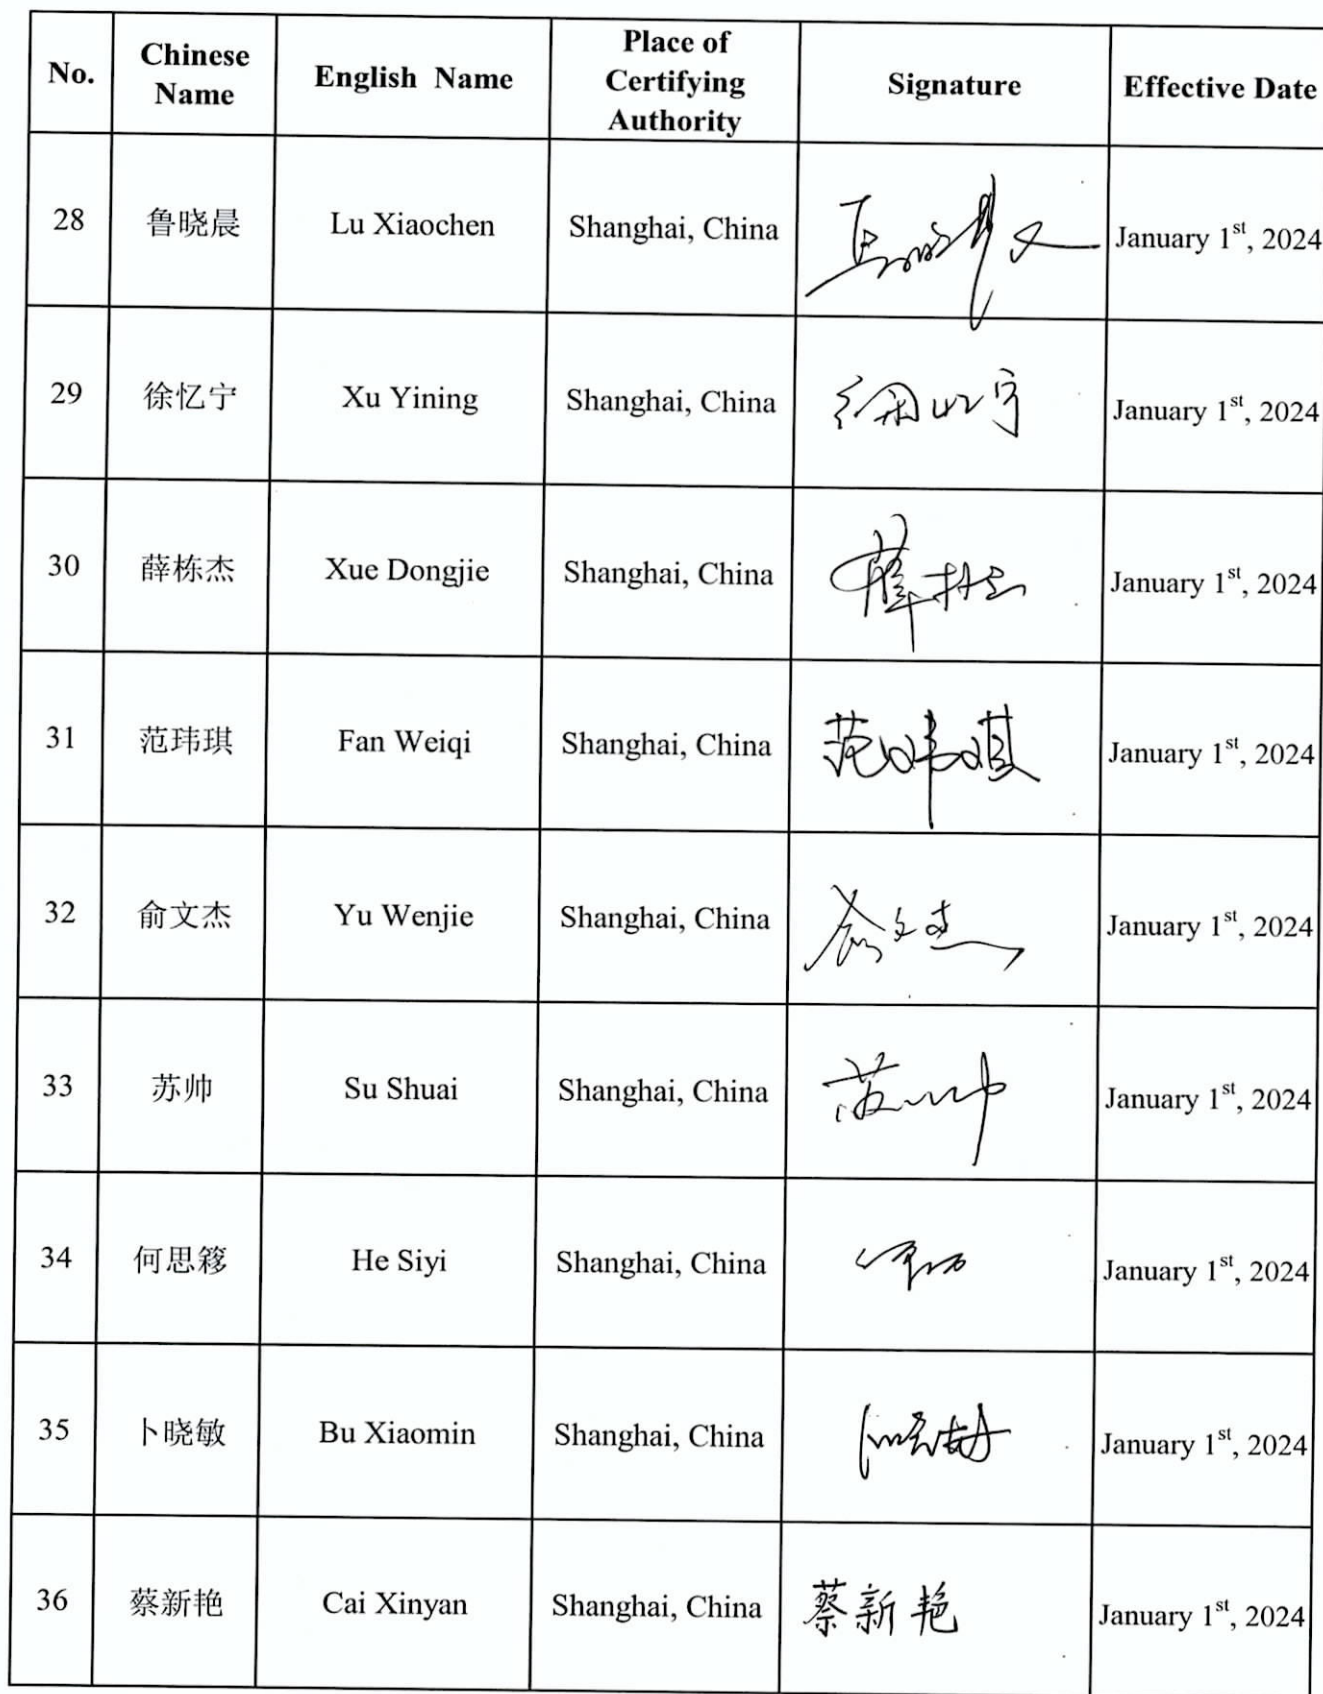 No.
Chinese
Name
English Name
Place of
Certifying
Authority
Signature
Effective Date
28
鲁晓晨
Lu Xiaochen
Shanghai, China
January 1st, 2024
29
徐忆宁
Xu Yining
Shanghai, China
January 1st, 2024
30
薛栋杰
Xue Dongjie
Shanghai, China
January 1st, 2024
31
范玮琪
Fan Weiqi
Shanghai, China
范玮琪
January 1st, 2024
32
俞文杰
Yu Wenjie
Shanghai, China
俞文杰
January 1st, 2024
33
苏帅
Su Shuai
Shanghai, China
苏帅
January 1st, 2024
34
何思簃
He Siyi
Shanghai, China
January 1st, 2024
35
卜晓敏
Bu Xiaomin
Shanghai, China
January 1st, 2024
36
蔡新艳
Cai Xinyan
Shanghai, China
蔡新艳
January 1st, 2024